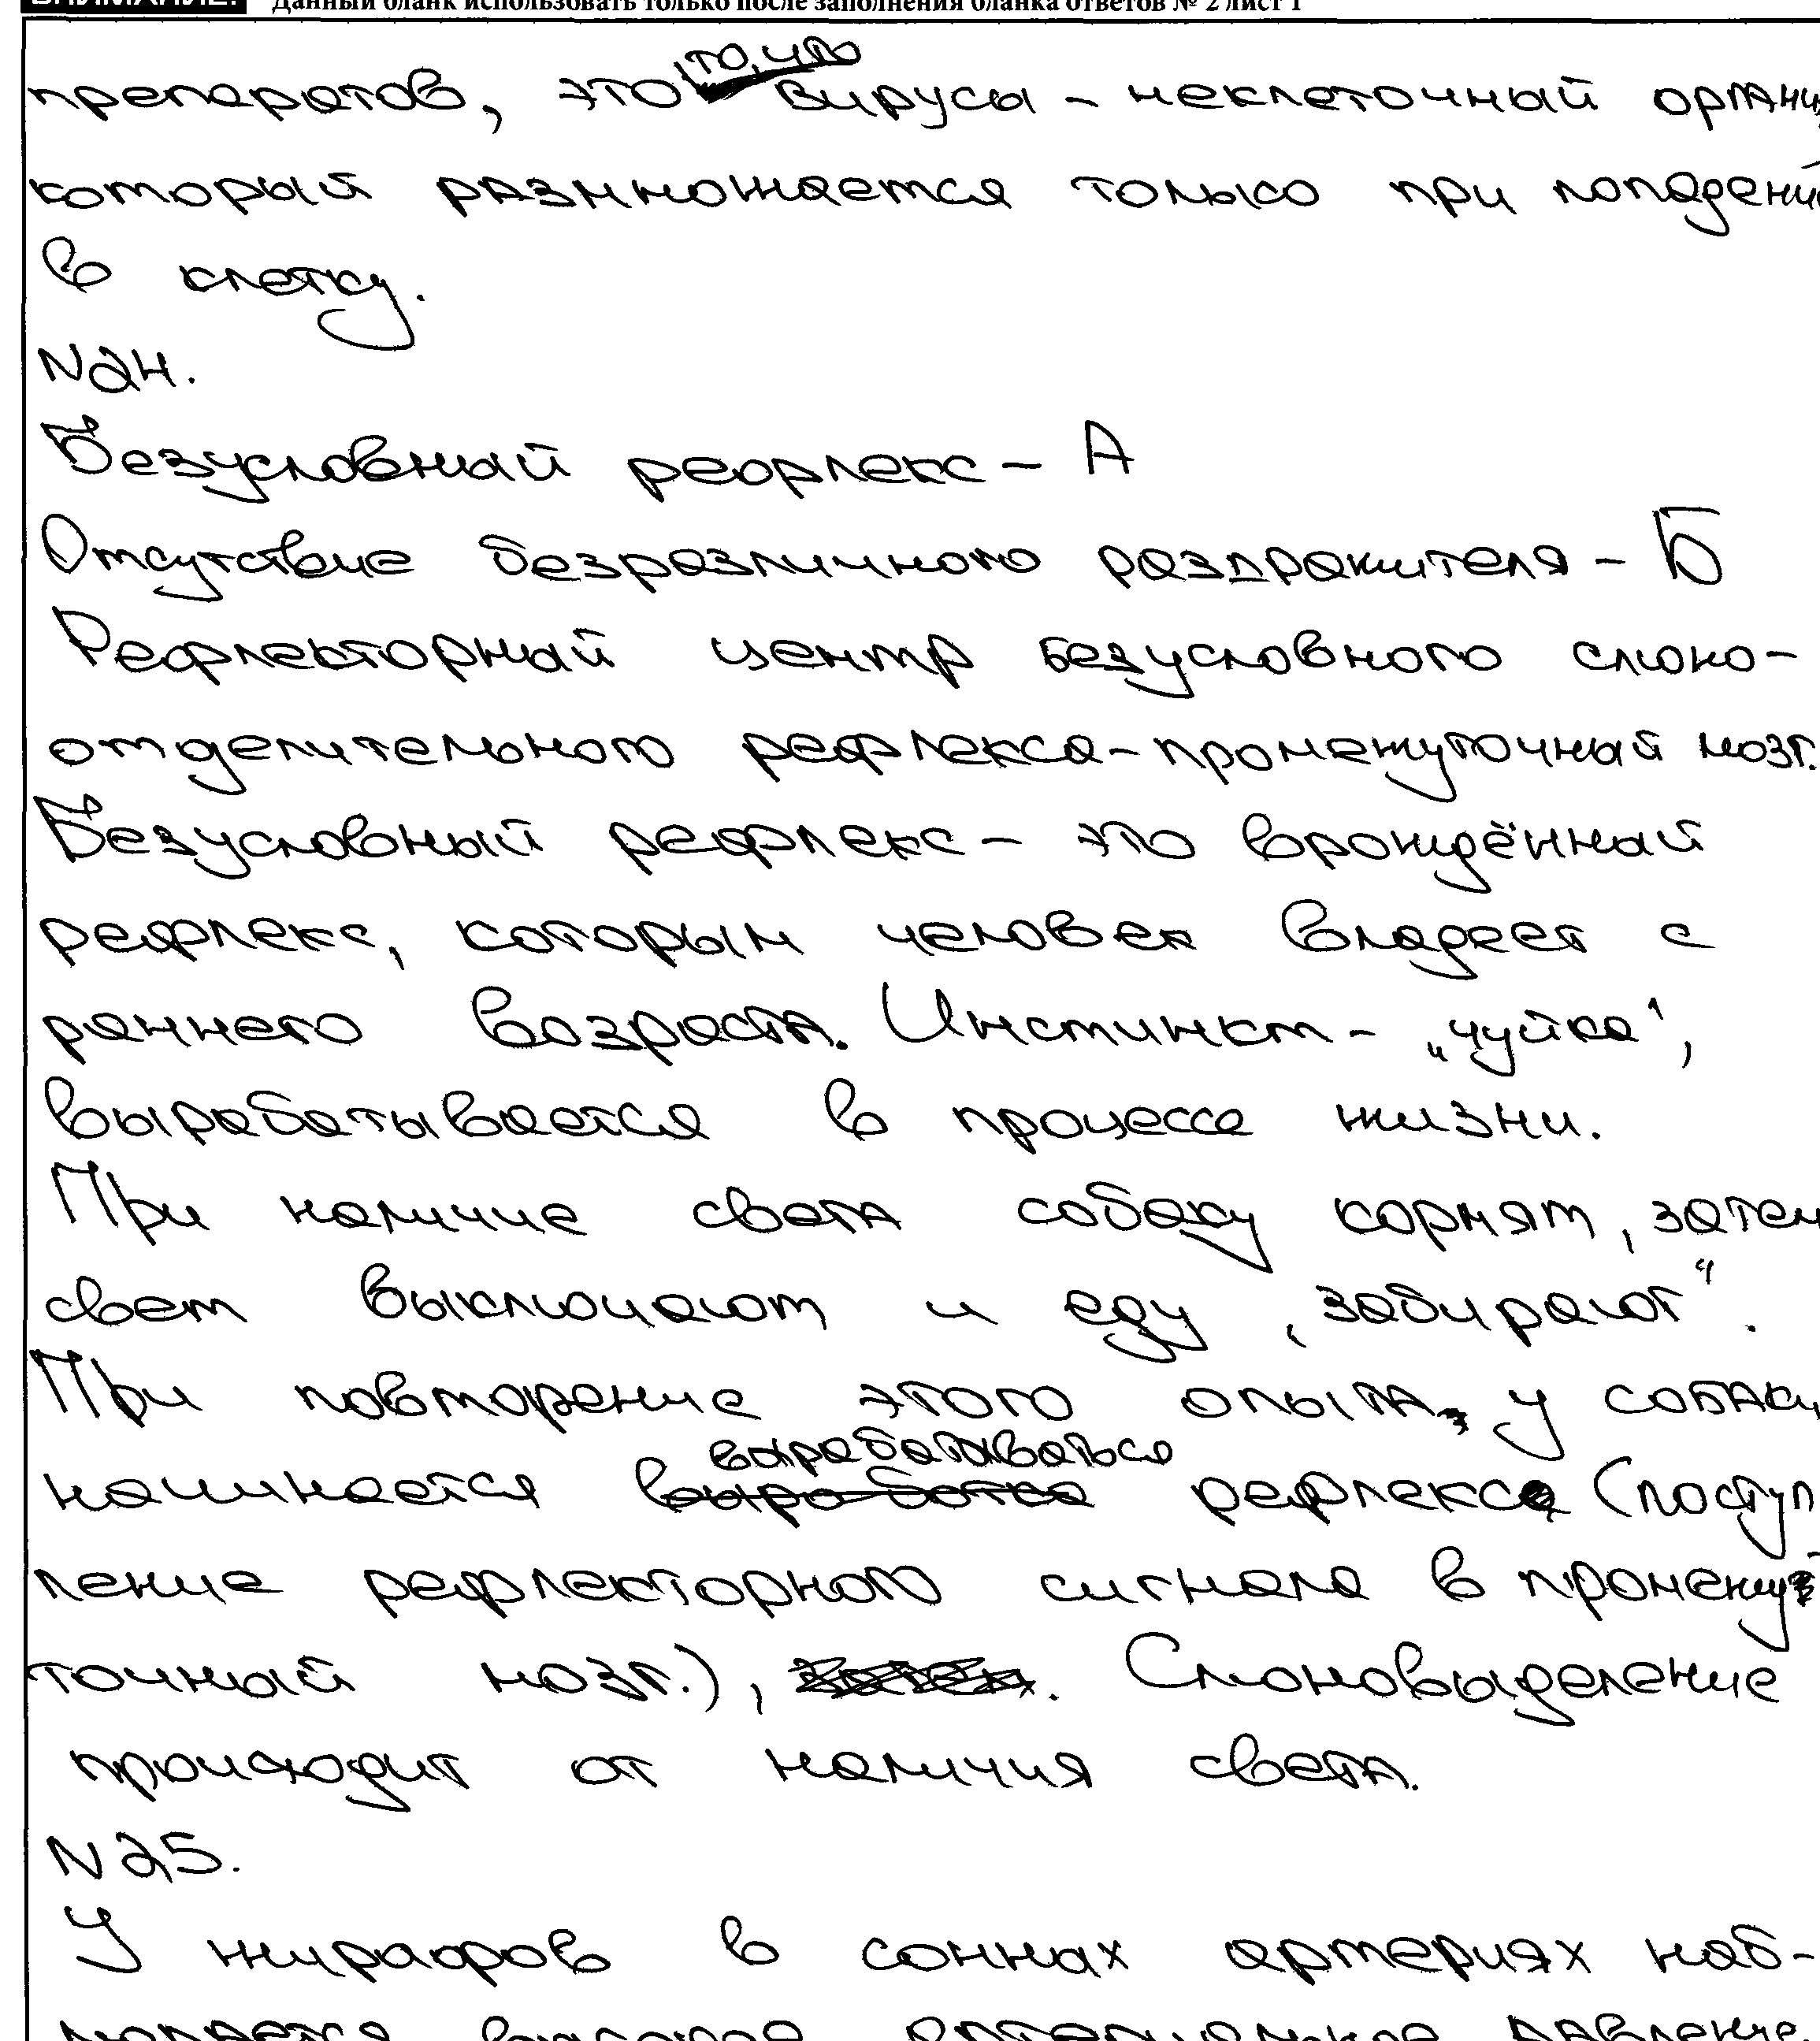 ВНИМАНИЕ! Данный бланк использовать только после заполнения бланка ответов № 2 лист 1
то, что
препаратов, это вирусы - неклеточный органи
который размножается только при попадени
в клетку.
N24.
Безусловный рефлекс - А
Отсутствие безразличного раздражителя - Б
Рефлекторный центр безусловного слюно-
отделительного рефлекса - промежуточный мозг.
Безусловный рефлекс - это врождённый
рефлекс, которым человек владеет с
раннего возраста. Инстинкт - „чуйка",
вырабатывается в процессе жизни.
При наличие света собаку кормят, затем
свет выключают и еду „забирают".
При повторение этого опыта, у собаки
вырабатываться
начинается выработка рефлекс (поступ
ление рефлекторного сигнала в промежу
точный мозг.), затем. Слюновыделение
происходит от наличия света.
N25.
У жирафов в сонных артериях наб-
людается высокое артериальное давление